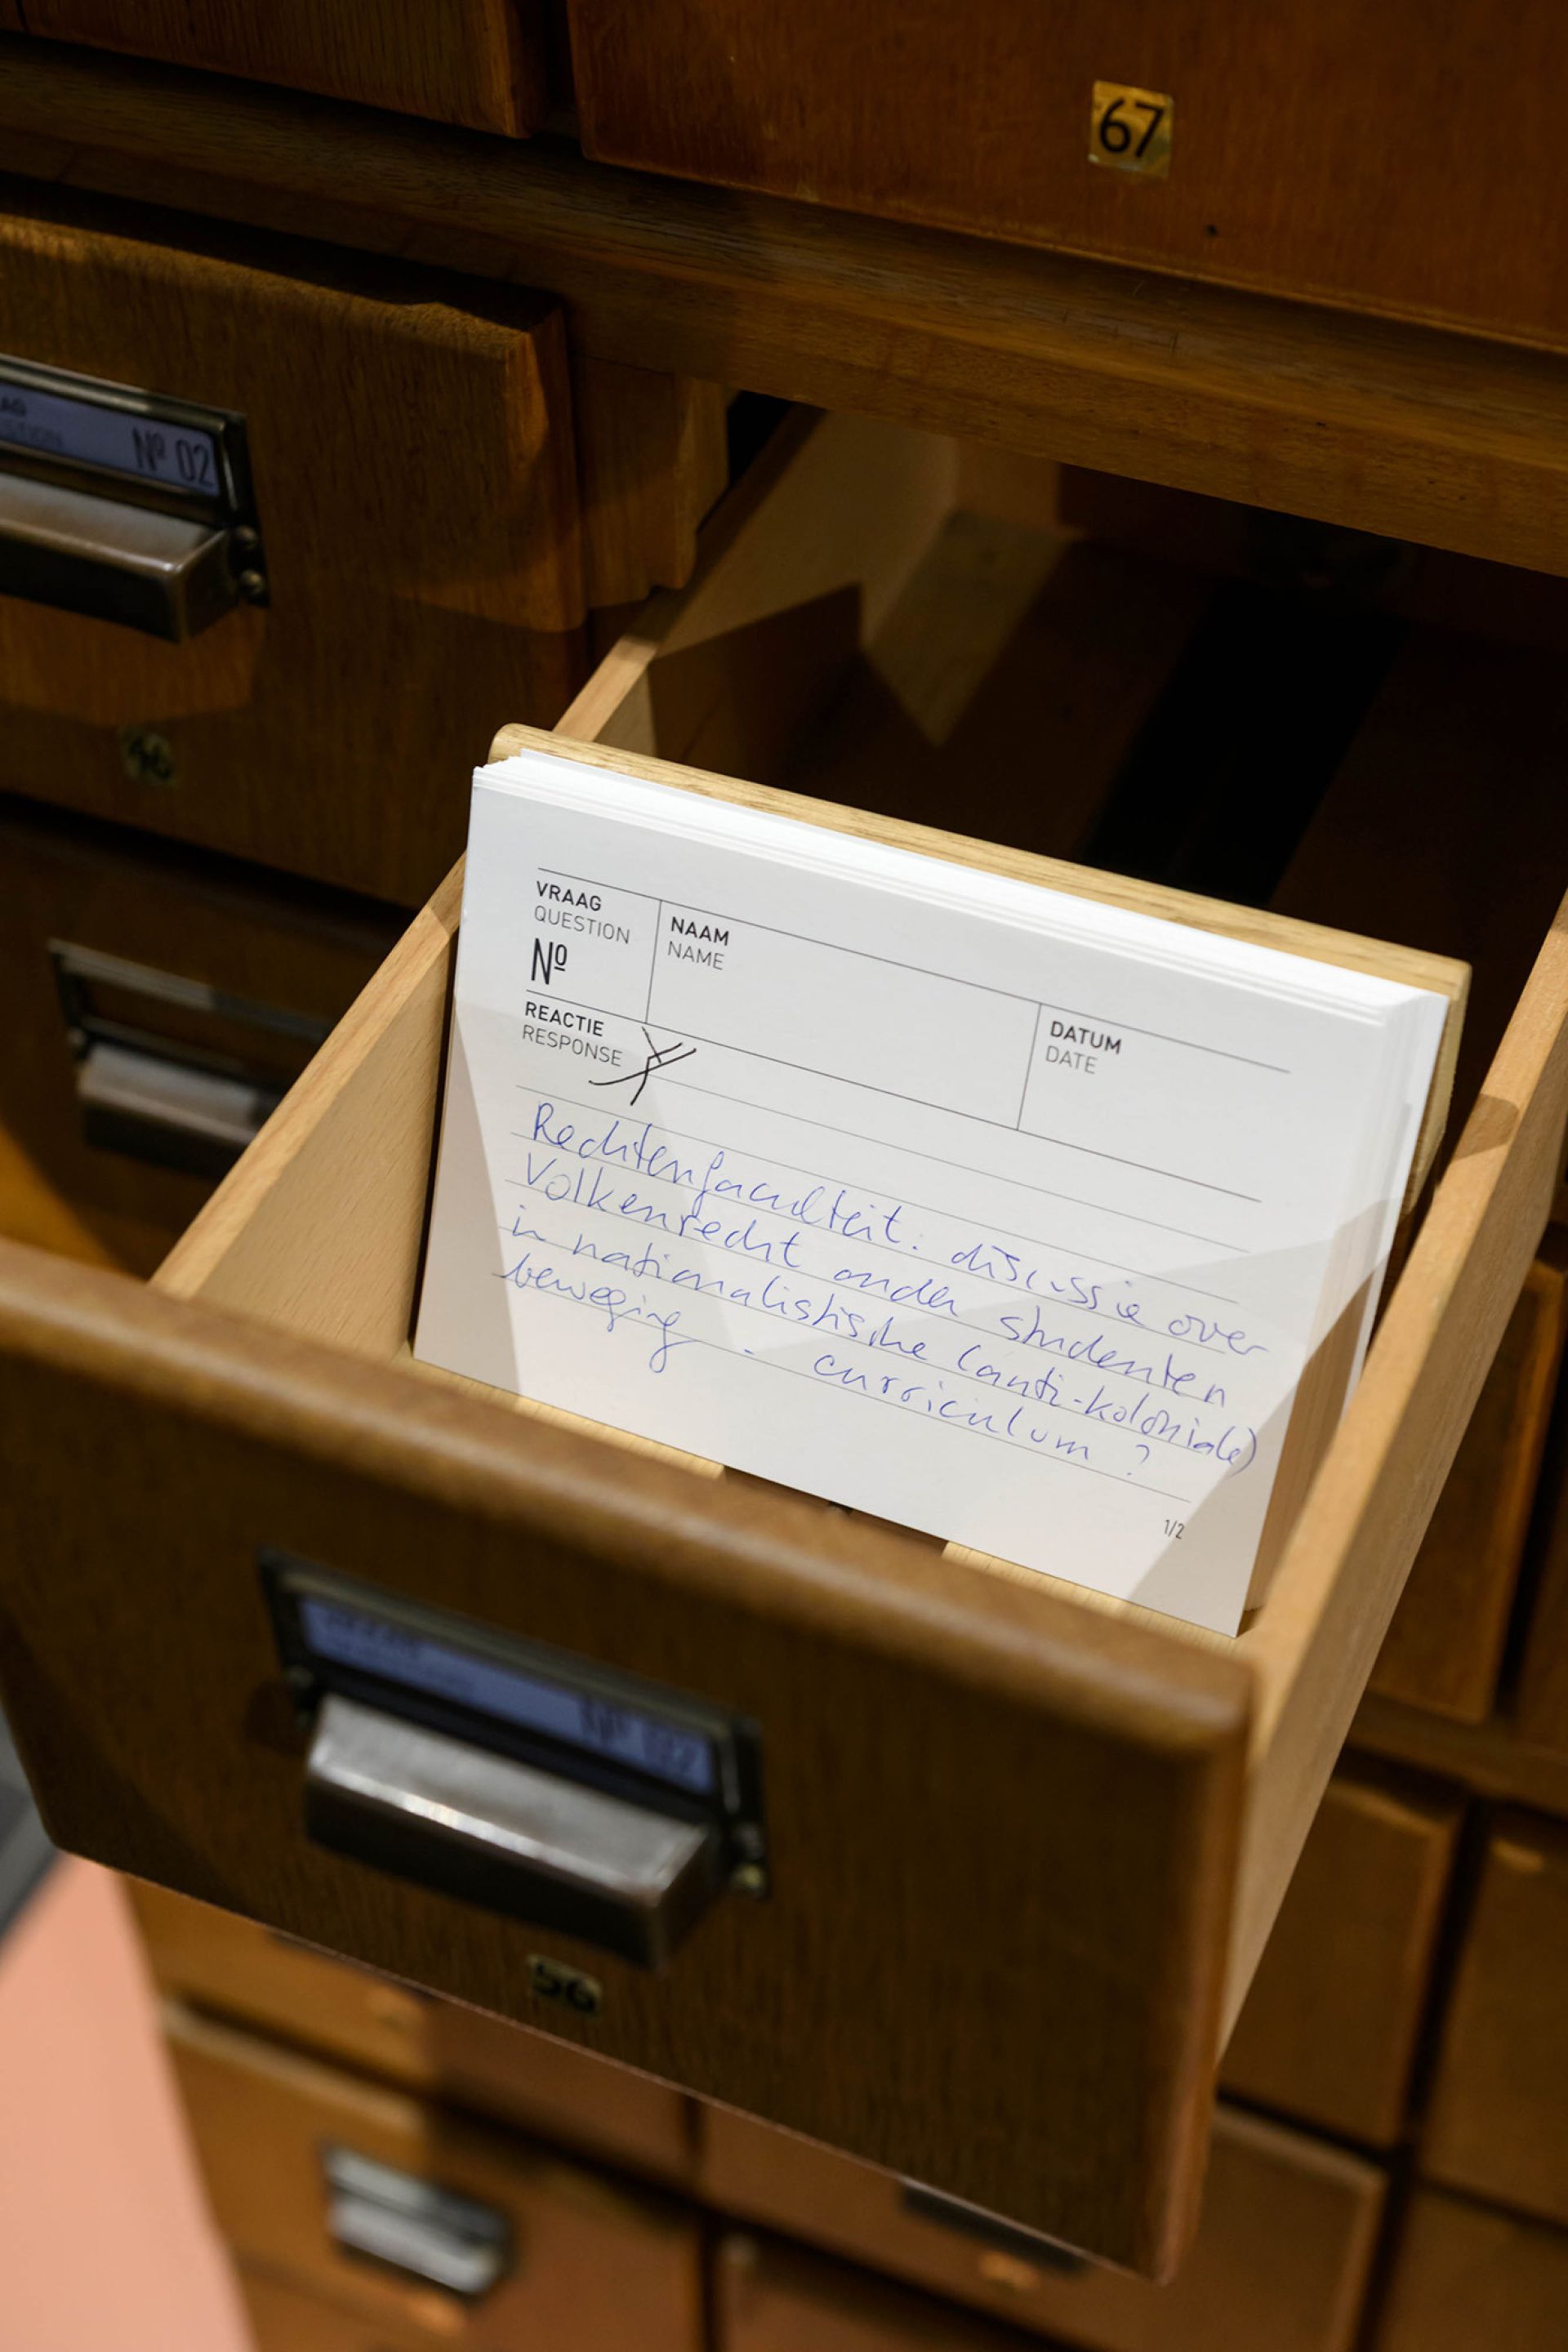 67
Nº 02
46
VRAAG
QUESTION
Nº
NAAM
NAME
DATUM
DATE
REACTIE
RESPONSE
Rechtenfaculteit: discussie over
Volkenrecht onder studenten
in nationalistische (anti-koloniale)
beweging - curriculum ?
1/2
56